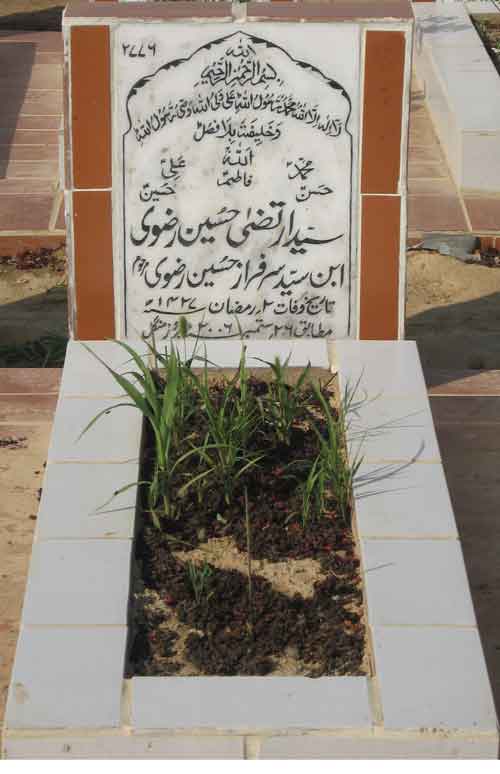 ۲۷۷۶
اللہ
بسم اللہ الرحمن الرحیم
لا الہ الا اللہ محمد رسول اللہ علی ولی اللہ وصی رسول اللہ
وخلیفتہ بلا فصل
اللہ
محمد علی
فاطمہ
حسن حسین
سید ارتضیٰ حسین رضوی
ابن سید سرفراز حسین رضوی مرحوم
تاریخ وفات ۲ رمضان ۱۴۲۷ھ
مطابق ۲۶ ستمبر ۲۰۰۶ بروز منگل